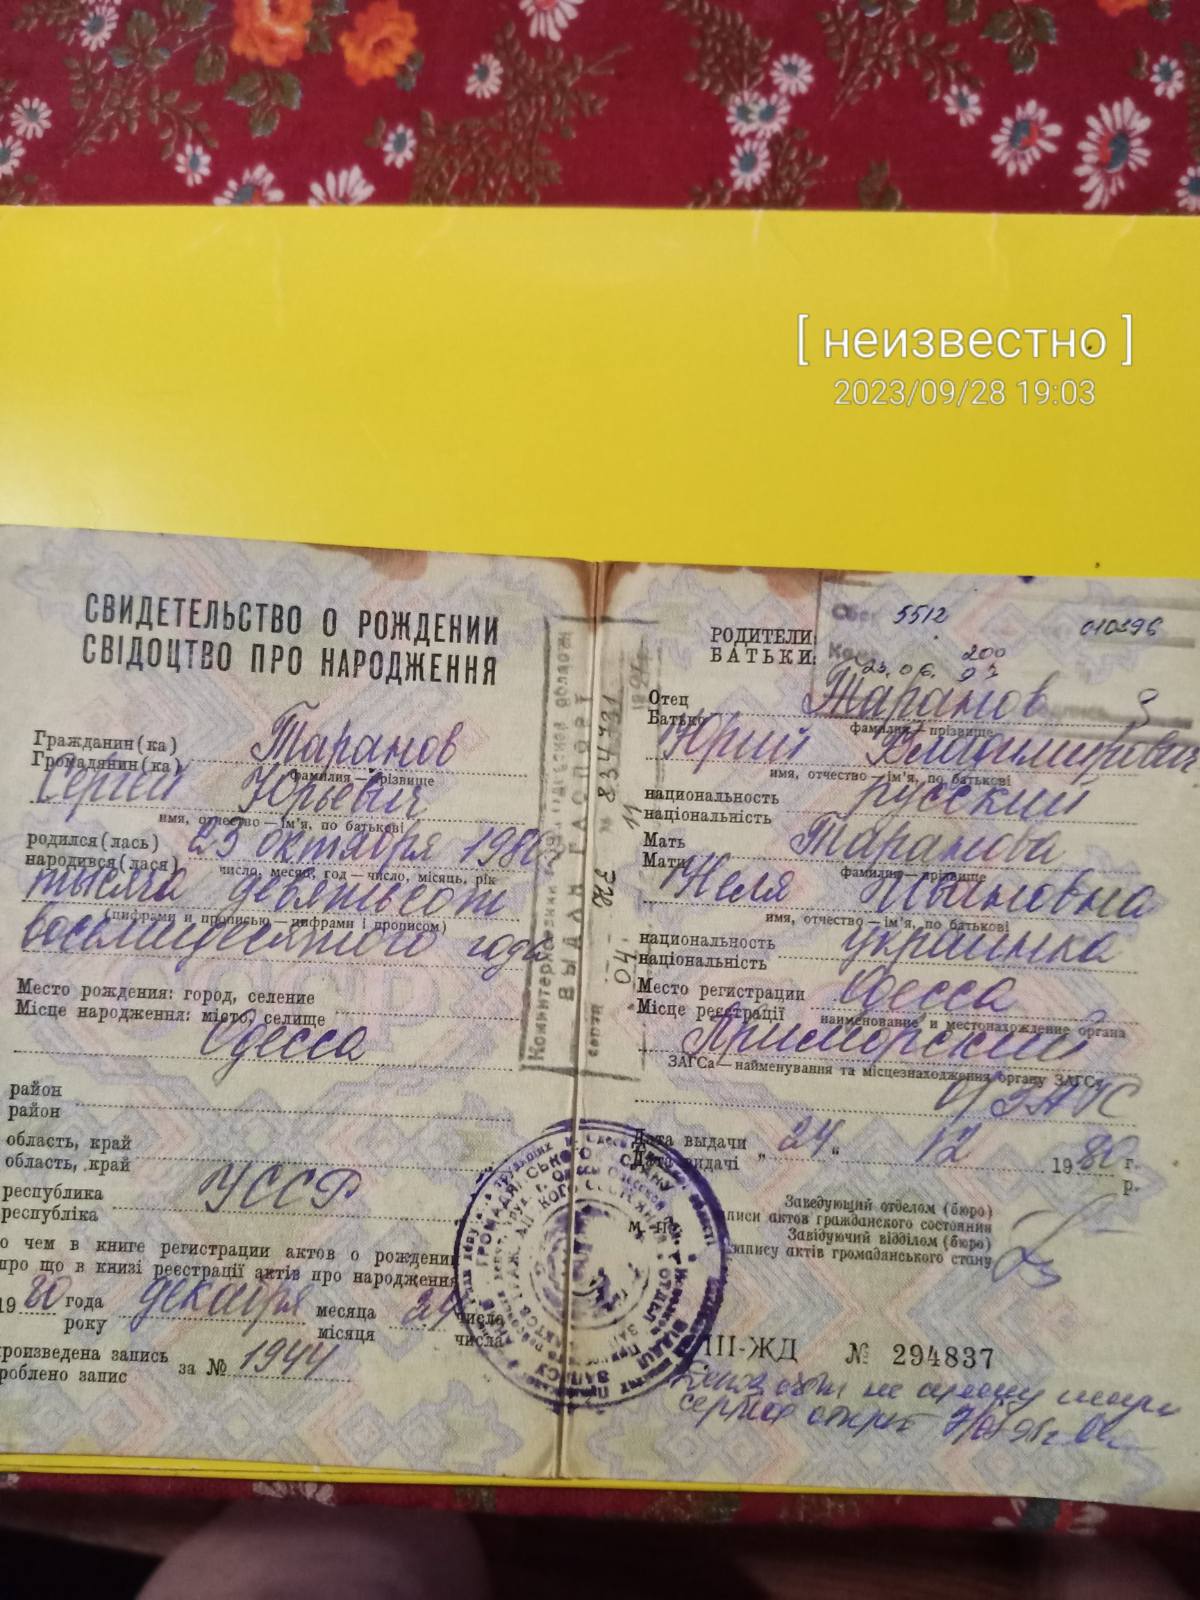 [ неизвестно ]
2023/09/28 19:03
СВИДЕТЕЛЬСТВО О РОЖДЕНИИ
СВІДОЦТВО ПРО НАРОДЖЕННЯ
Гражданин(ка) Таранов
Громадянин(ка)
фамилия—прізвище
Сергей Юрьевич
имя, отчество—ім'я, по батькові
родился(лась) 23 октября 198
народився(лася)
число, месяц, год—число, місяць, рік
тысяча девятьсот
(цифрами и прописью—цифрами і прописом)
восьмидесятого года
Место рождения: город, селение
Місце народження: місто, селище
Одесса
район
район
область, край
область, край
республика УССР
республіка
о чем в книге регистрации актов о рождении
про що в книзі реєстрації актів про народження
1980 года декабря месяца 24 числа
року місяця числа
произведена запись за № 1944
роблено запис
ВЫДАН ПАСПОРТ
НЕ № 834731
04 11
5512 010396
200
23.06.97
РОДИТЕЛИ:
БАТЬКИ:
Отец Таранов
Батько
фамилия—прізвище
Юрий Владимирович
имя, отчество—ім'я, по батькові
национальность русский
національність
Мать Таранова
Мати
фамилия—прізвище
Неля Ивановна
имя, отчество—ім'я, по батькові
национальность украинка
національність
Место регистрации Одесса
Місце реєстрації
наименование и местонахождение органа
Приморский
ЗАГСа—найменування та місцезнаходження органу ЗАГСа
о/ЗАГС
Дата выдачи „ 24 „ 12 1980 г.
Дата видачі р.
Заведующий отделом (бюро)
записи актов гражданского состояния
Завідуючий відділом (бюро)
запису актів громадянського стану
М. П.
III-ЖД № 294837